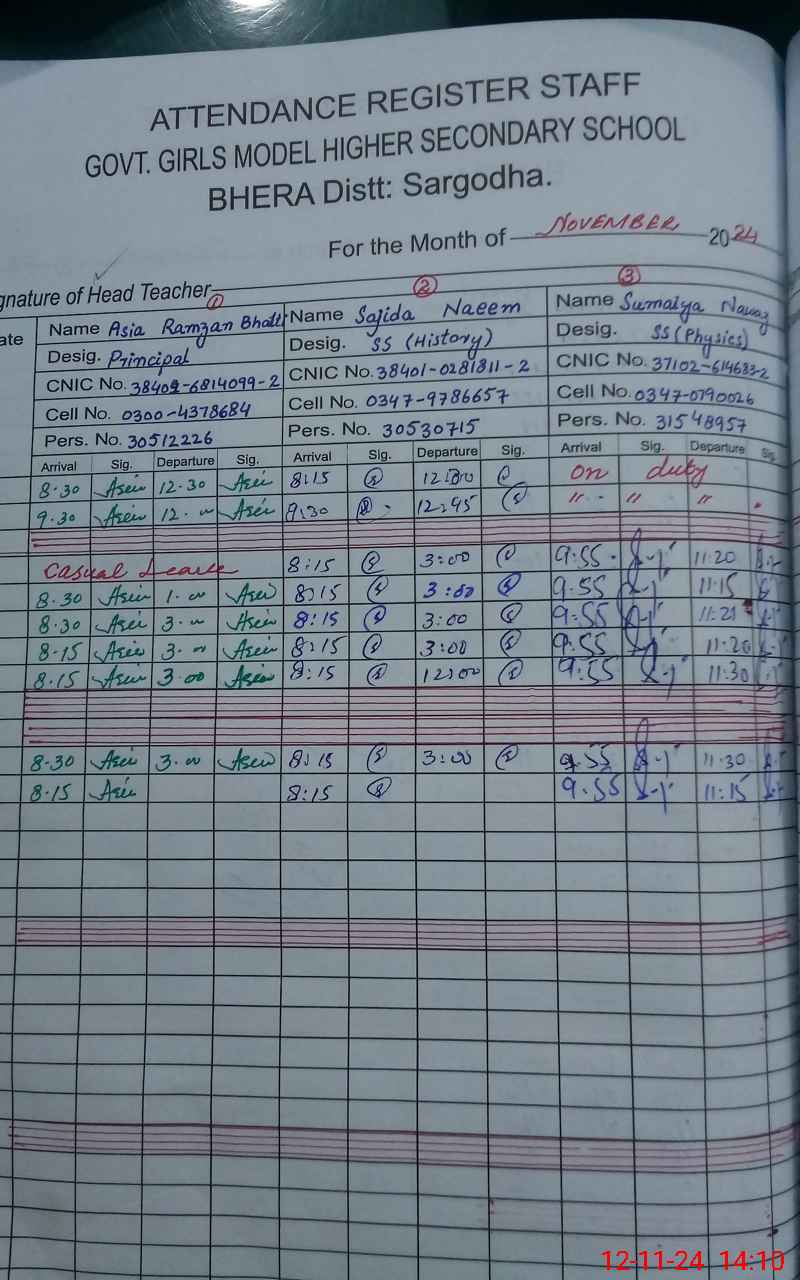 ATTENDANCE REGISTER STAFF
GOVT. GIRLS MODEL HIGHER SECONDARY SCHOOL
BHERA Distt: Sargodha.
For the Month of NOVEMBER 2024
gnature of Head Teacher
1 2 3
ate Name Asia Ramzan Bhatti Name Sajida Naeem Name Sumaiya Nawaz
Desig. Principal Desig. SS (History) Desig. SS (Physics)
CNIC No. 38402-6814099-2 CNIC No. 38401-0281811-2 CNIC No. 37102-6146832-2
Cell No. 0300-4378684 Cell No. 0347-9786657 Cell No. 0347-0790026
Pers. No. 30512226 Pers. No. 30530715 Pers. No. 31548957
Arrival Sig. Departure Sig. Arrival Sig. Departure Sig. Arrival Sig. Departure Sig
8.30 Asia 12.30 Asia 8:15 12:00 on duty
9.30 Asia 12.00 Asia 9:30 12:45 " " "
Casual Leave 8:15 3:00 9:55 11:20
8.30 Asia 1.00 Asia 8:15 3:00 9.55 11:15
8.30 Asia 3.00 Asia 8:15 3:00 9:55 11:21
8.15 Asia 3.00 Asia 8:15 3:00 9:55 11:20
8.15 Asia 3.00 Asia 8:15 12:00 9:55 11:30
8.30 Asia 3.00 Asia 8:15 3:00 9.55 11:30
8.15 Asia 8:15 9.55 11:15
12-11-24 14:10